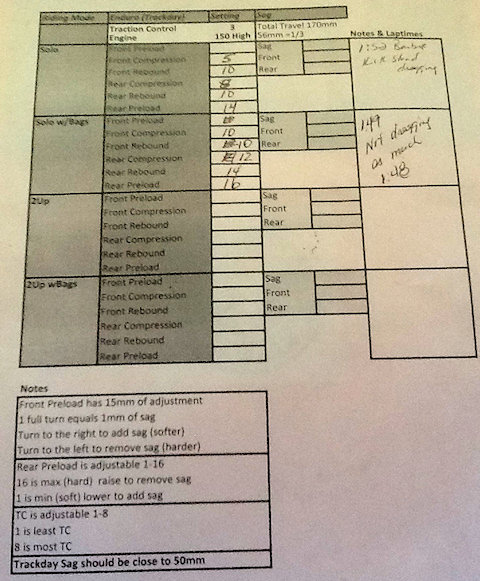 Riding Mode Enduro (Trackday) Setting Sag
Traction Control 3 Total Travel 170mm
Engine 150 High 56mm =1/3 Notes & Laptimes
Solo Front Preload Sag 1:52
Front Compression 5 Front Kick stand
Front Rebound 10 Rear dragging
Rear Compression 8
Rear Rebound 10
Rear Preload 14
Solo w/Bags Front Preload Sag 1:49
Front Compression 10 Front Not dragging
Front Rebound 10 Rear as much
Rear Compression 12 1:48
Rear Rebound 14
Rear Preload 16
2Up Front Preload Sag
Front Compression Front
Front Rebound Rear
Rear Compression
Rear Rebound
Rear Preload
2Up wBags Front Preload Sag
Front Compression Front
Front Rebound Rear
Rear Compression
Rear Rebound
Rear Preload
Notes
Front Preload has 15mm of adjustment
1 full turn equals 1mm of sag
Turn to the right to add sag (softer)
Turn to the left to remove sag (harder)
Rear Preload is adjustable 1-16
16 is max (hard) raise to remove sag
1 is min (soft) lower to add sag
TC is adjustable 1-8
1 is least TC
8 is most TC
Trackday Sag should be close to 50mm